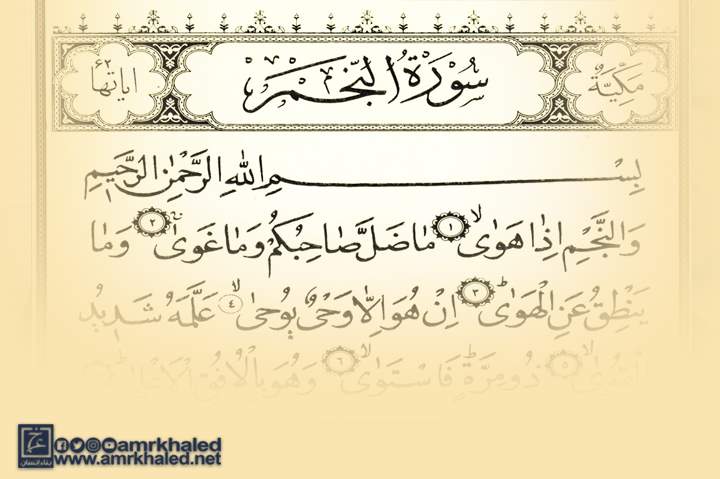 مَكِّيَّةٌ
سُورَةُ النَّجْمِ
اٰيَاتُهَا ٦٢
بِسْمِ اللّٰهِ الرَّحْمٰنِ الرَّحِيمِ
وَالنَّجْمِ اِذَا هَوٰىۙ ﴿١﴾ مَا ضَلَّ صَاحِبُكُمْ وَمَا غَوٰىۚ ﴿٢﴾ وَمَا
يَنْطِقُ عَنِ الْهَوٰىۜ ﴿٣﴾ اِنْ هُوَ اِلَّا وَحْىٌ يُوحٰىۙ ﴿٤﴾ عَلَّمَهُ شَدِيدُ
الْقُوٰىۙ ﴿٥﴾ ذُو مِرَّةٍۜ فَاسْتَوٰىۙ ﴿٦﴾ وَهُوَ بِالْاُفُقِ
بناء إنسان
amrkhaled
www.amrkhaled.net